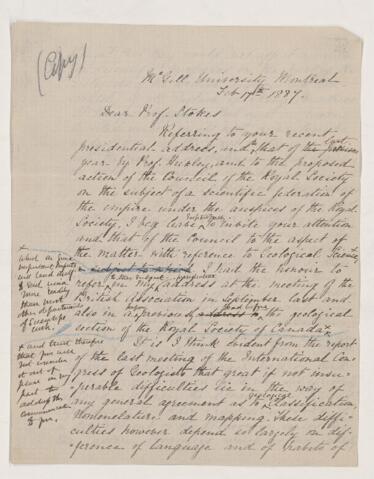 (Copy)
McGill University Montreal
Feb 17th 1887.
Dear Prof. Stokes
Referring to your recent
presidential address, and that of the last
year by Prof. Huxley, and to the proposed
action of the Council of the Royal Society
on the subject of a scientific federation of
the empire under the auspices of the Royal
Society, I beg leave to invite your attention
and that of the Council to the aspect of
the matter with reference to Geological Science,
I had the honour to
refer in my address at the meeting of the
British Association in September last and
also in a previous address to the geological
section of the Royal Society of Canada
It is I think evident from the report
of the last meeting of the International Con-
gress of Geologists that great if not inse-
perable difficulties lie in the way of
any general agreement as to geological classification,
Nomenclature and mapping. These diffi-
culties however depend so largely on dif-
ference of language and of habits of
x and trust therefore
that you will
not consider
it out of
place on my
part to
address this
communication
to you.